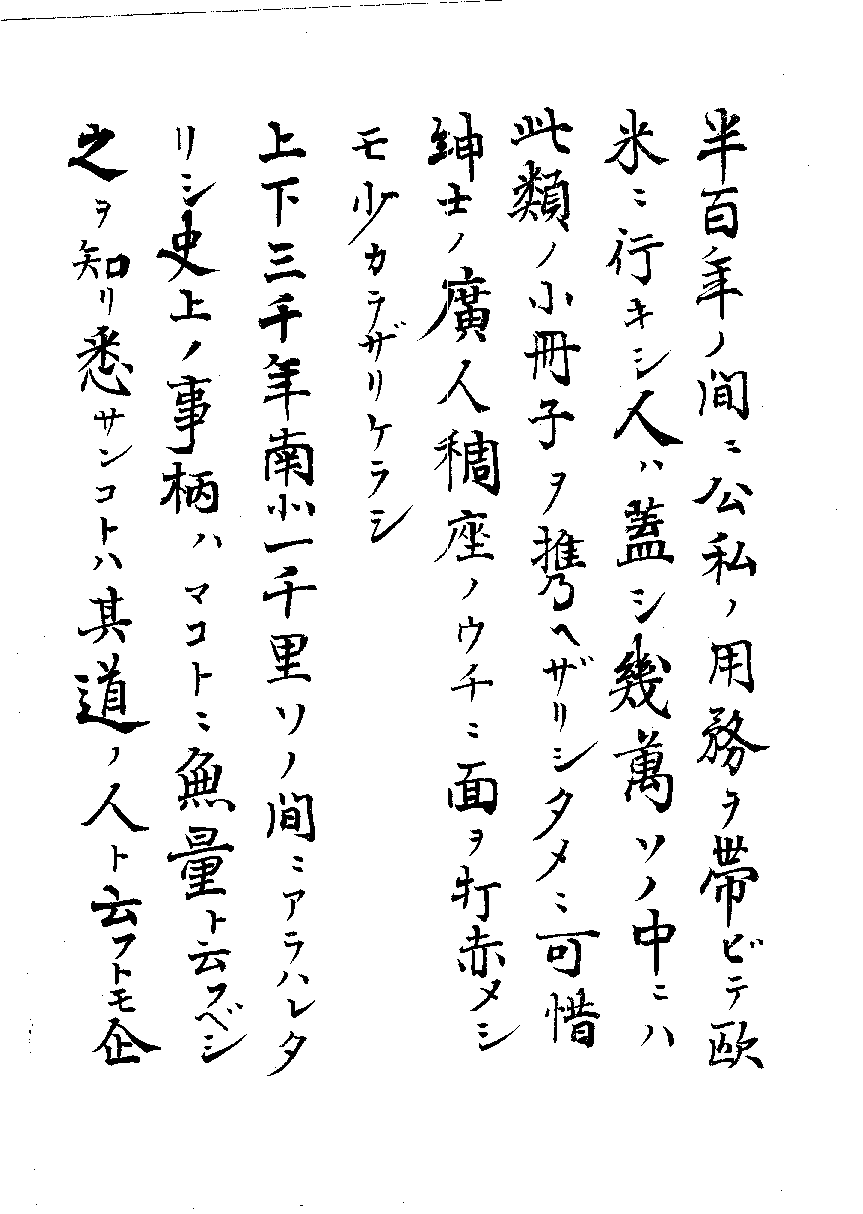 半百年ノ間ニ公私ノ用務ヲ帯ビテ欧
米ニ行キシ人ハ蓋シ幾萬ソノ中ニハ
此類ノ小冊子ヲ携ヘザリシタメニ可惜
紳士ノ廣人稠座ノウチニ面ヲ打赤メシ
モ少カラザリケラシ
上下三千年南北一千里ソノ間ニアラハレタ
リシ史上ノ事柄ハマコトニ無量ト云フベシ
之ヲ知リ悉サンコトハ其道ノ人ト云フトモ企